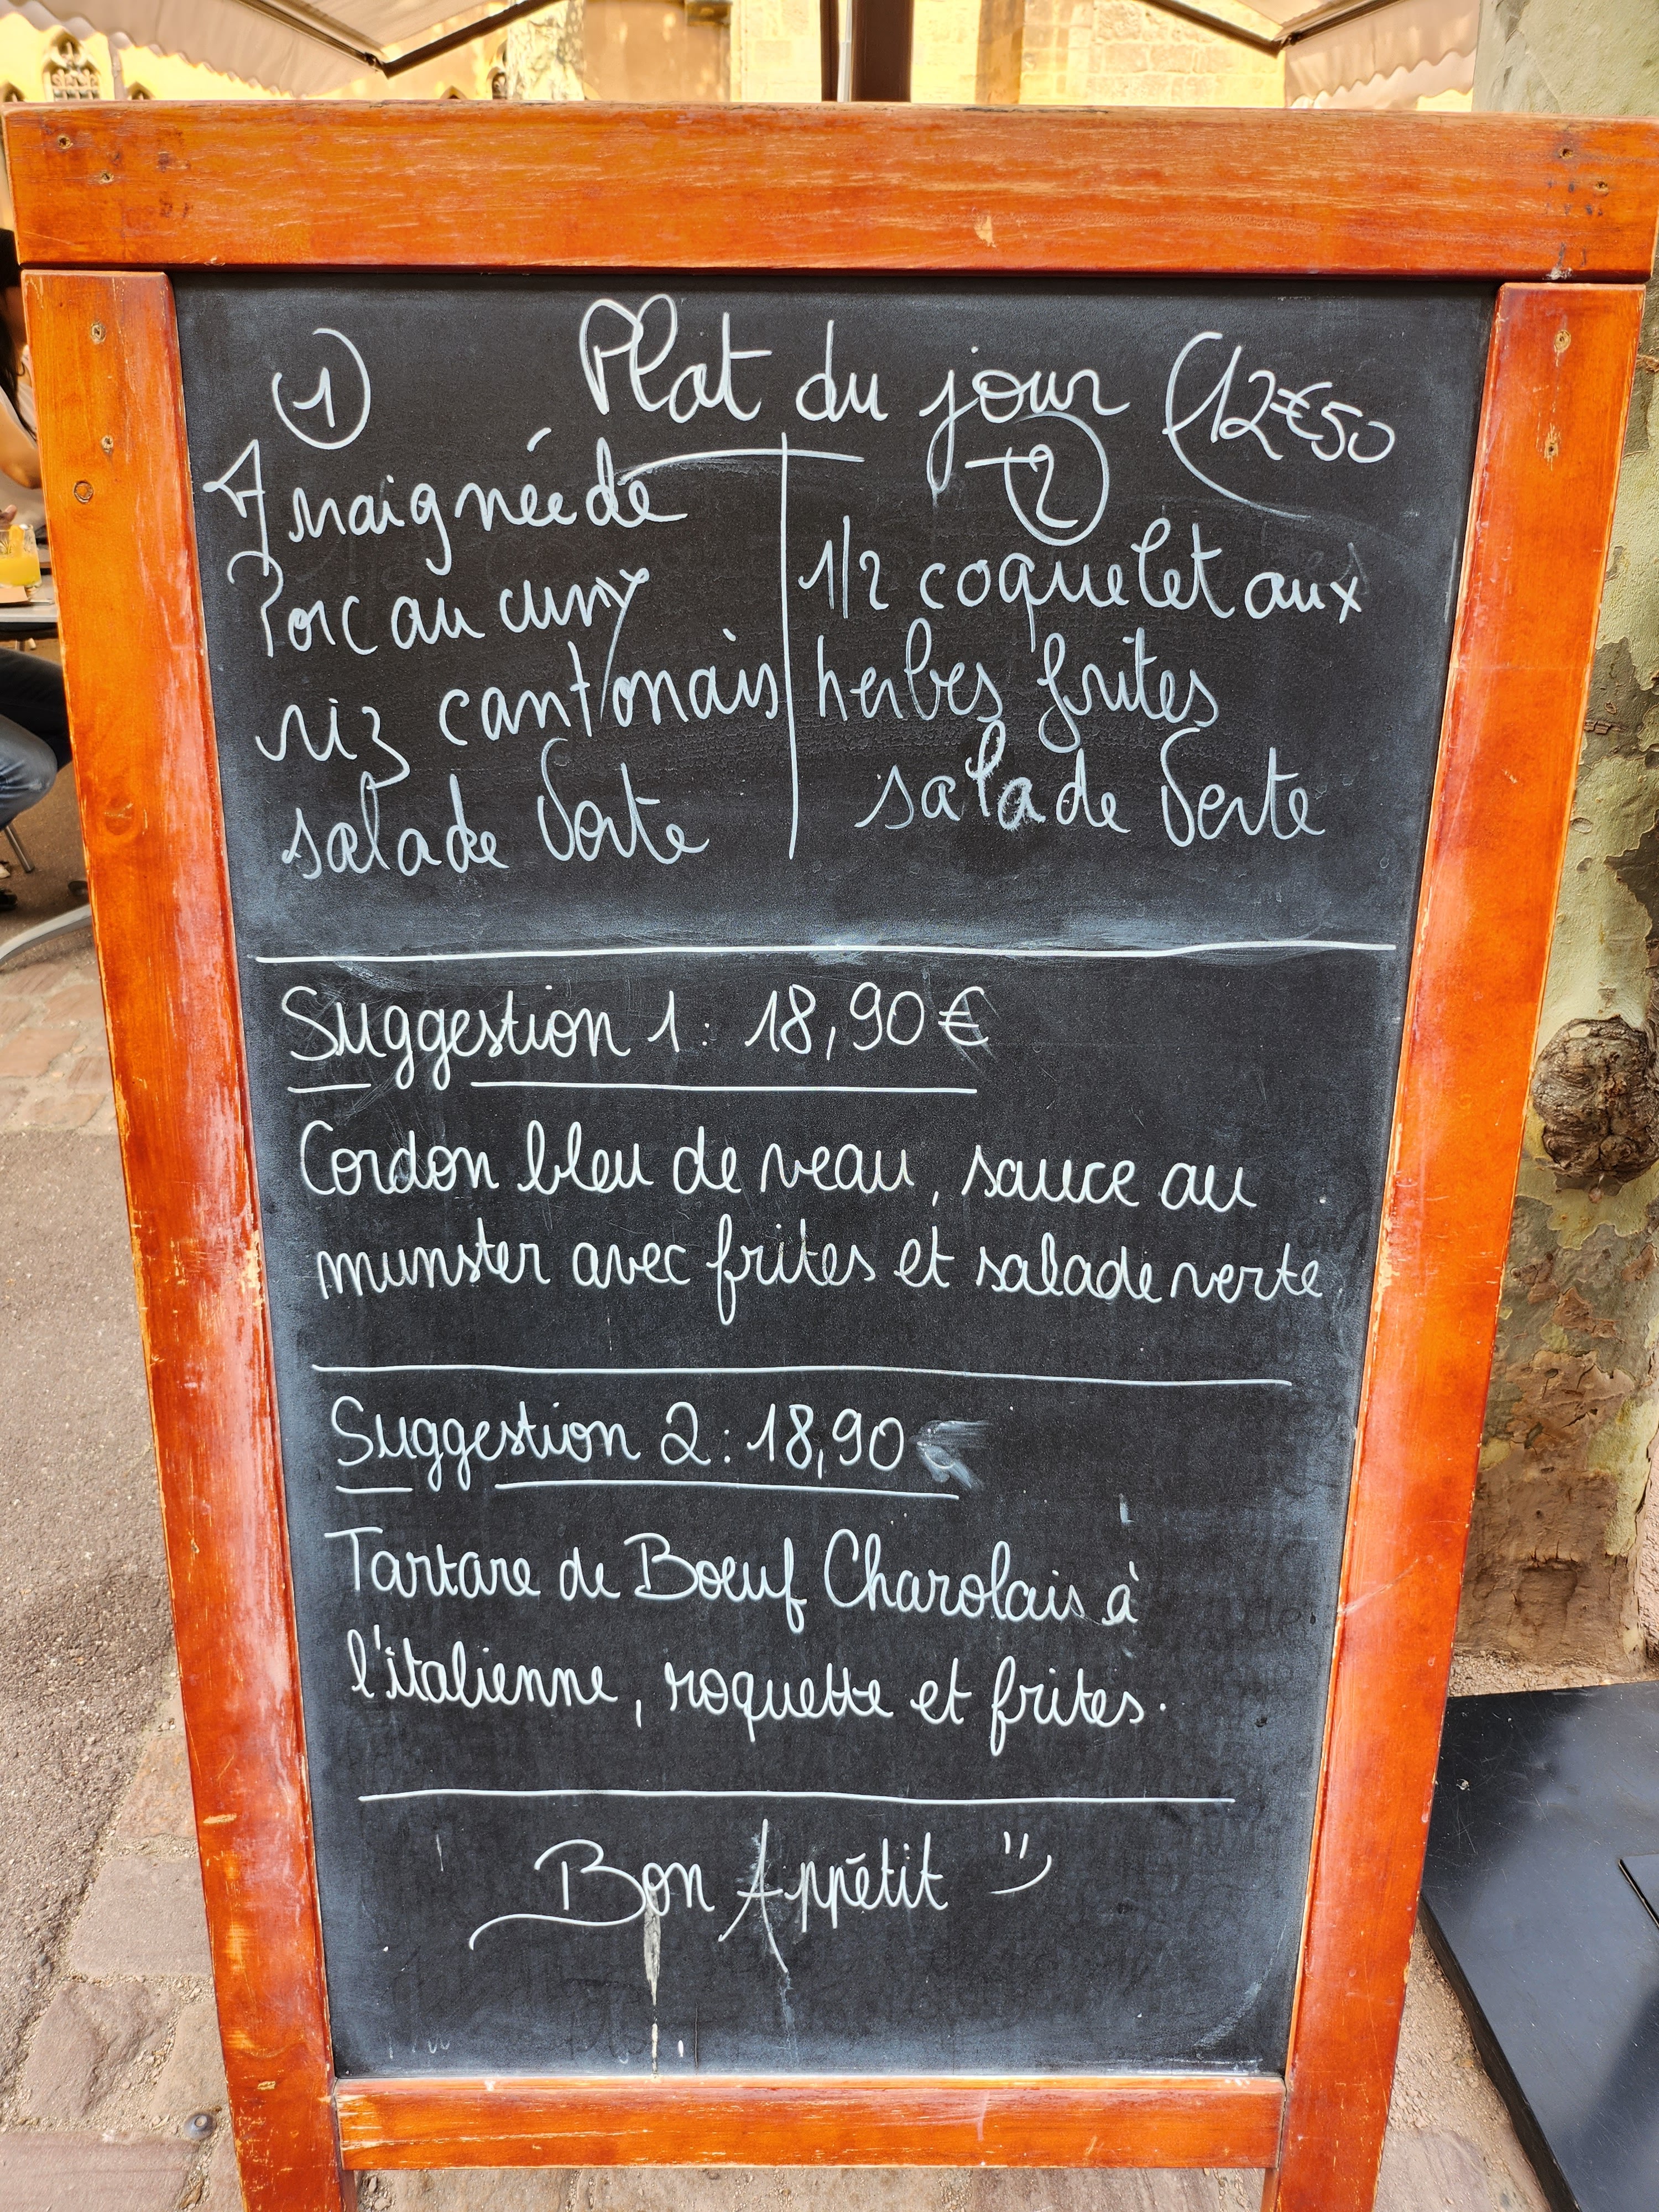 Plat du jour 12€50
1
Araignée de
Porc au curry
riz cantonais
salade Verte
2
1/2 coquelet aux
herbes frites
salade Verte
Suggestion 1 : 18,90€
Cordon bleu de veau, sauce au
munster avec frites et salade verte
Suggestion 2 : 18,90€
Tartare de Boeuf Charolais à
l'italienne, roquette et frites.
Bon Appétit